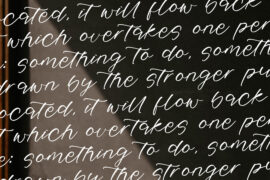 ocated, it will flow back
t which overtakes one per
: something to do, someth
drawn by the stronger pu
ocated, it will flow back
t which overtakes one per
e: something to do, someth
drawn by the stronger p